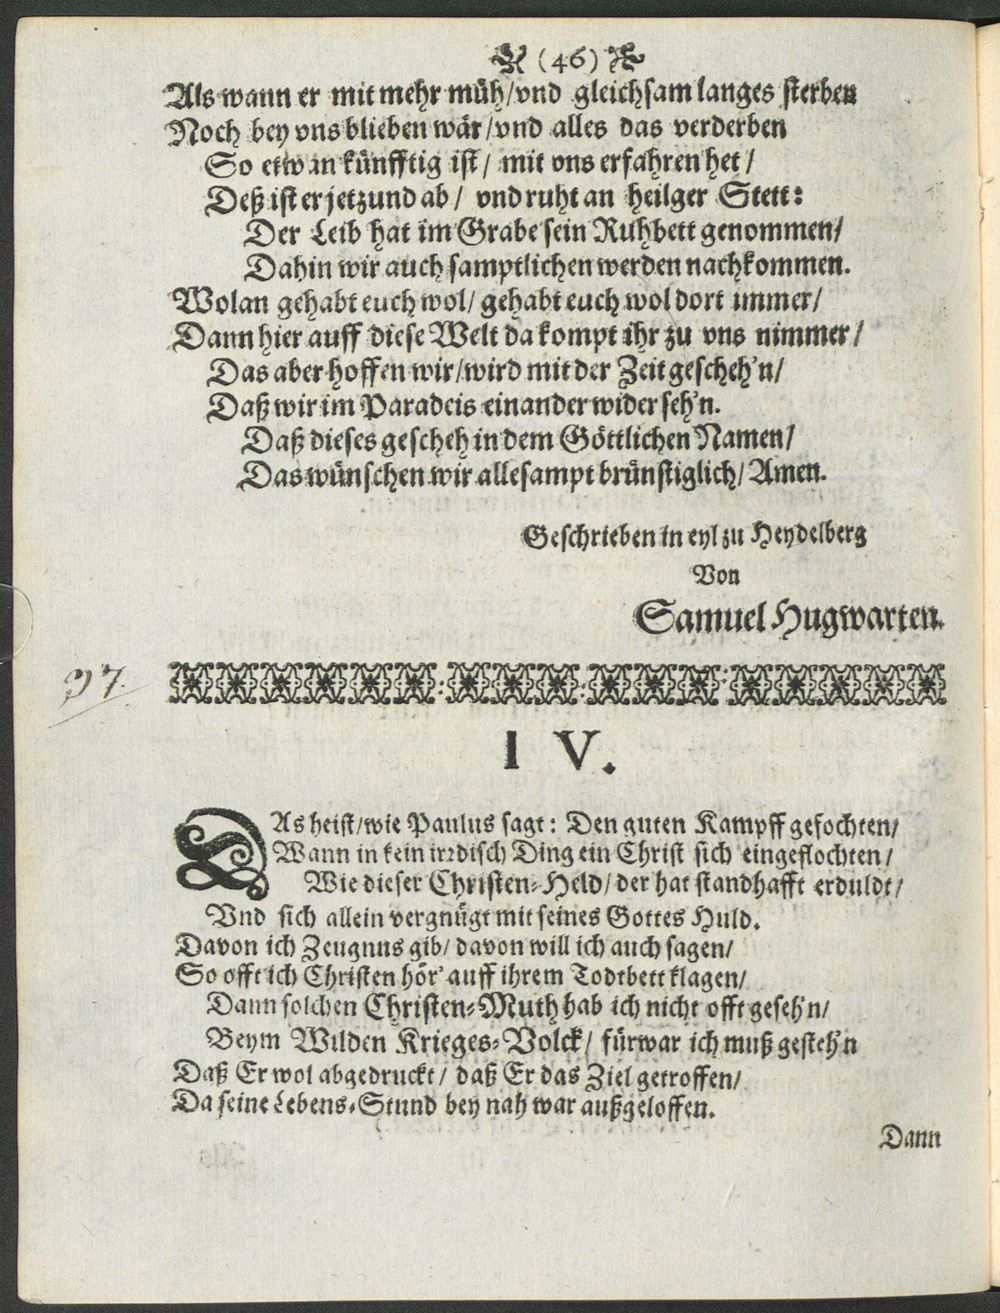 (46)
Als wann er mit mehr müh/vnd gleichsam langes sterben
Noch bey vns blieben wär/vnd alles das verderben
So etwan künfftig ist/ mit vns erfahren het/
Deß ist er jetzund ab/ vnd ruht an heilger Stett:
Der Leib hat im Grabe sein Ruhbett genommen/
Dahin wir auch samptlichen werden nachkommen.
Wolan gehabt euch wol/ gehabt euch wol dort immer/
Dann hier auff diese Welt da kompt ihr zu vns nimmer/
Das aber hoffen wir/wird mit der Zeit gescheh'n/
Daß wir im Paradeis einander wider seh'n.
Daß dieses gescheh in dem Göttlichen Namen/
Das wünschen wir allesampt brünstiglich/ Amen.
Geschrieben in eyl zu Heydelberg
Von
Samuel Hugwarten.
IV.
DAs heist/wie Paulus sagt: Den guten Kampff gefochten/
Wann in kein irrdisch Ding ein Christ sich eingeflochten/
Wie dieser Christen-Held/ der hat standhafft erduldt/
Vnd sich allein vergnügt mit seines Gottes Huld.
Davon ich Zeugnus gib/ davon will ich auch sagen/
So offt ich Christen hör' auff ihrem Todtbett klagen/
Dann solchen Christen-Muth hab ich nicht offt geseh'n/
Beym Wilden Krieges-Volck/ fürwar ich muß gesteh'n
Daß Er wol abgedruckt/ daß Er das Ziel getroffen/
Da seine Lebens-Stund bey nah war außgeloffen.
Dann